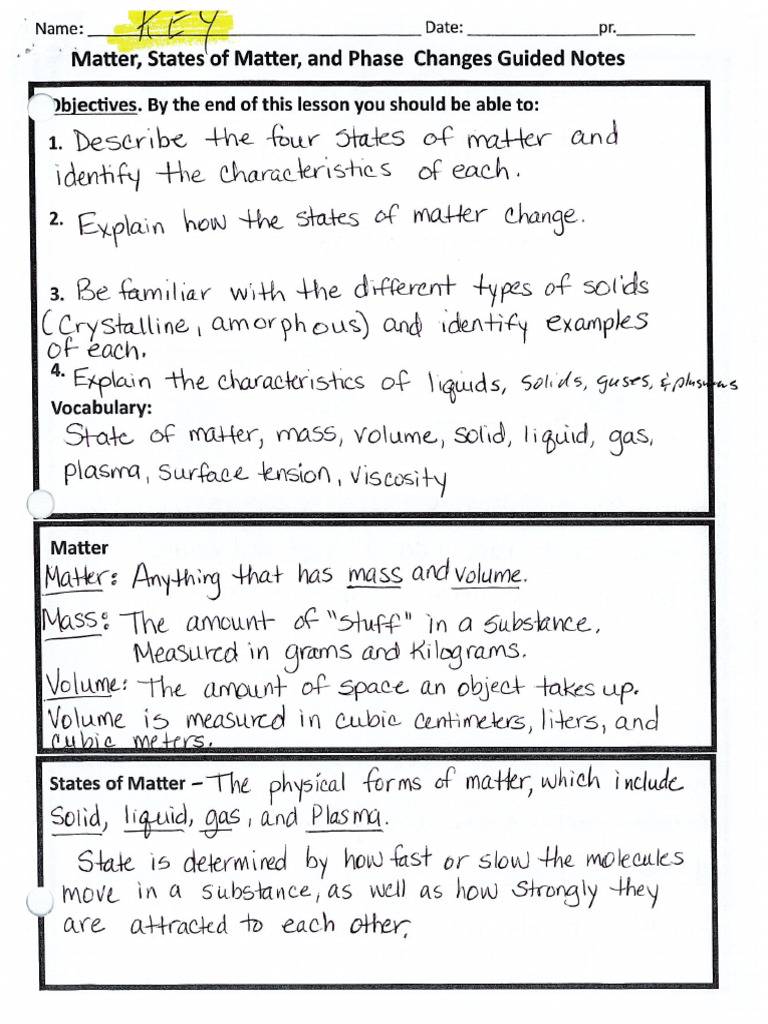 Name: KEY Date: pr.
Matter, States of Matter, and Phase Changes Guided Notes
Objectives. By the end of this lesson you should be able to:
1. Describe the four states of matter and
identify the characteristics of each.
2. Explain how the states of matter change.
3. Be familiar with the different types of solids
(Crystalline, amorphous) and identify examples
of each.
4. Explain the characteristics of liquids, solids, gases, & plasmas
Vocabulary:
State of matter, mass, volume, solid, liquid, gas,
plasma, surface tension, viscosity
Matter
Matter: Anything that has mass and volume.
Mass: The amount of "stuff" in a substance.
Measured in grams and Kilograms.
Volume: The amount of space an object takes up.
Volume is measured in cubic centimeters, liters, and
cubic meters.
States of Matter – The physical forms of matter, which include
Solid, liquid, gas, and Plasma.
State is determined by how fast or slow the molecules
move in a substance, as well as how strongly they
are attracted to each other.